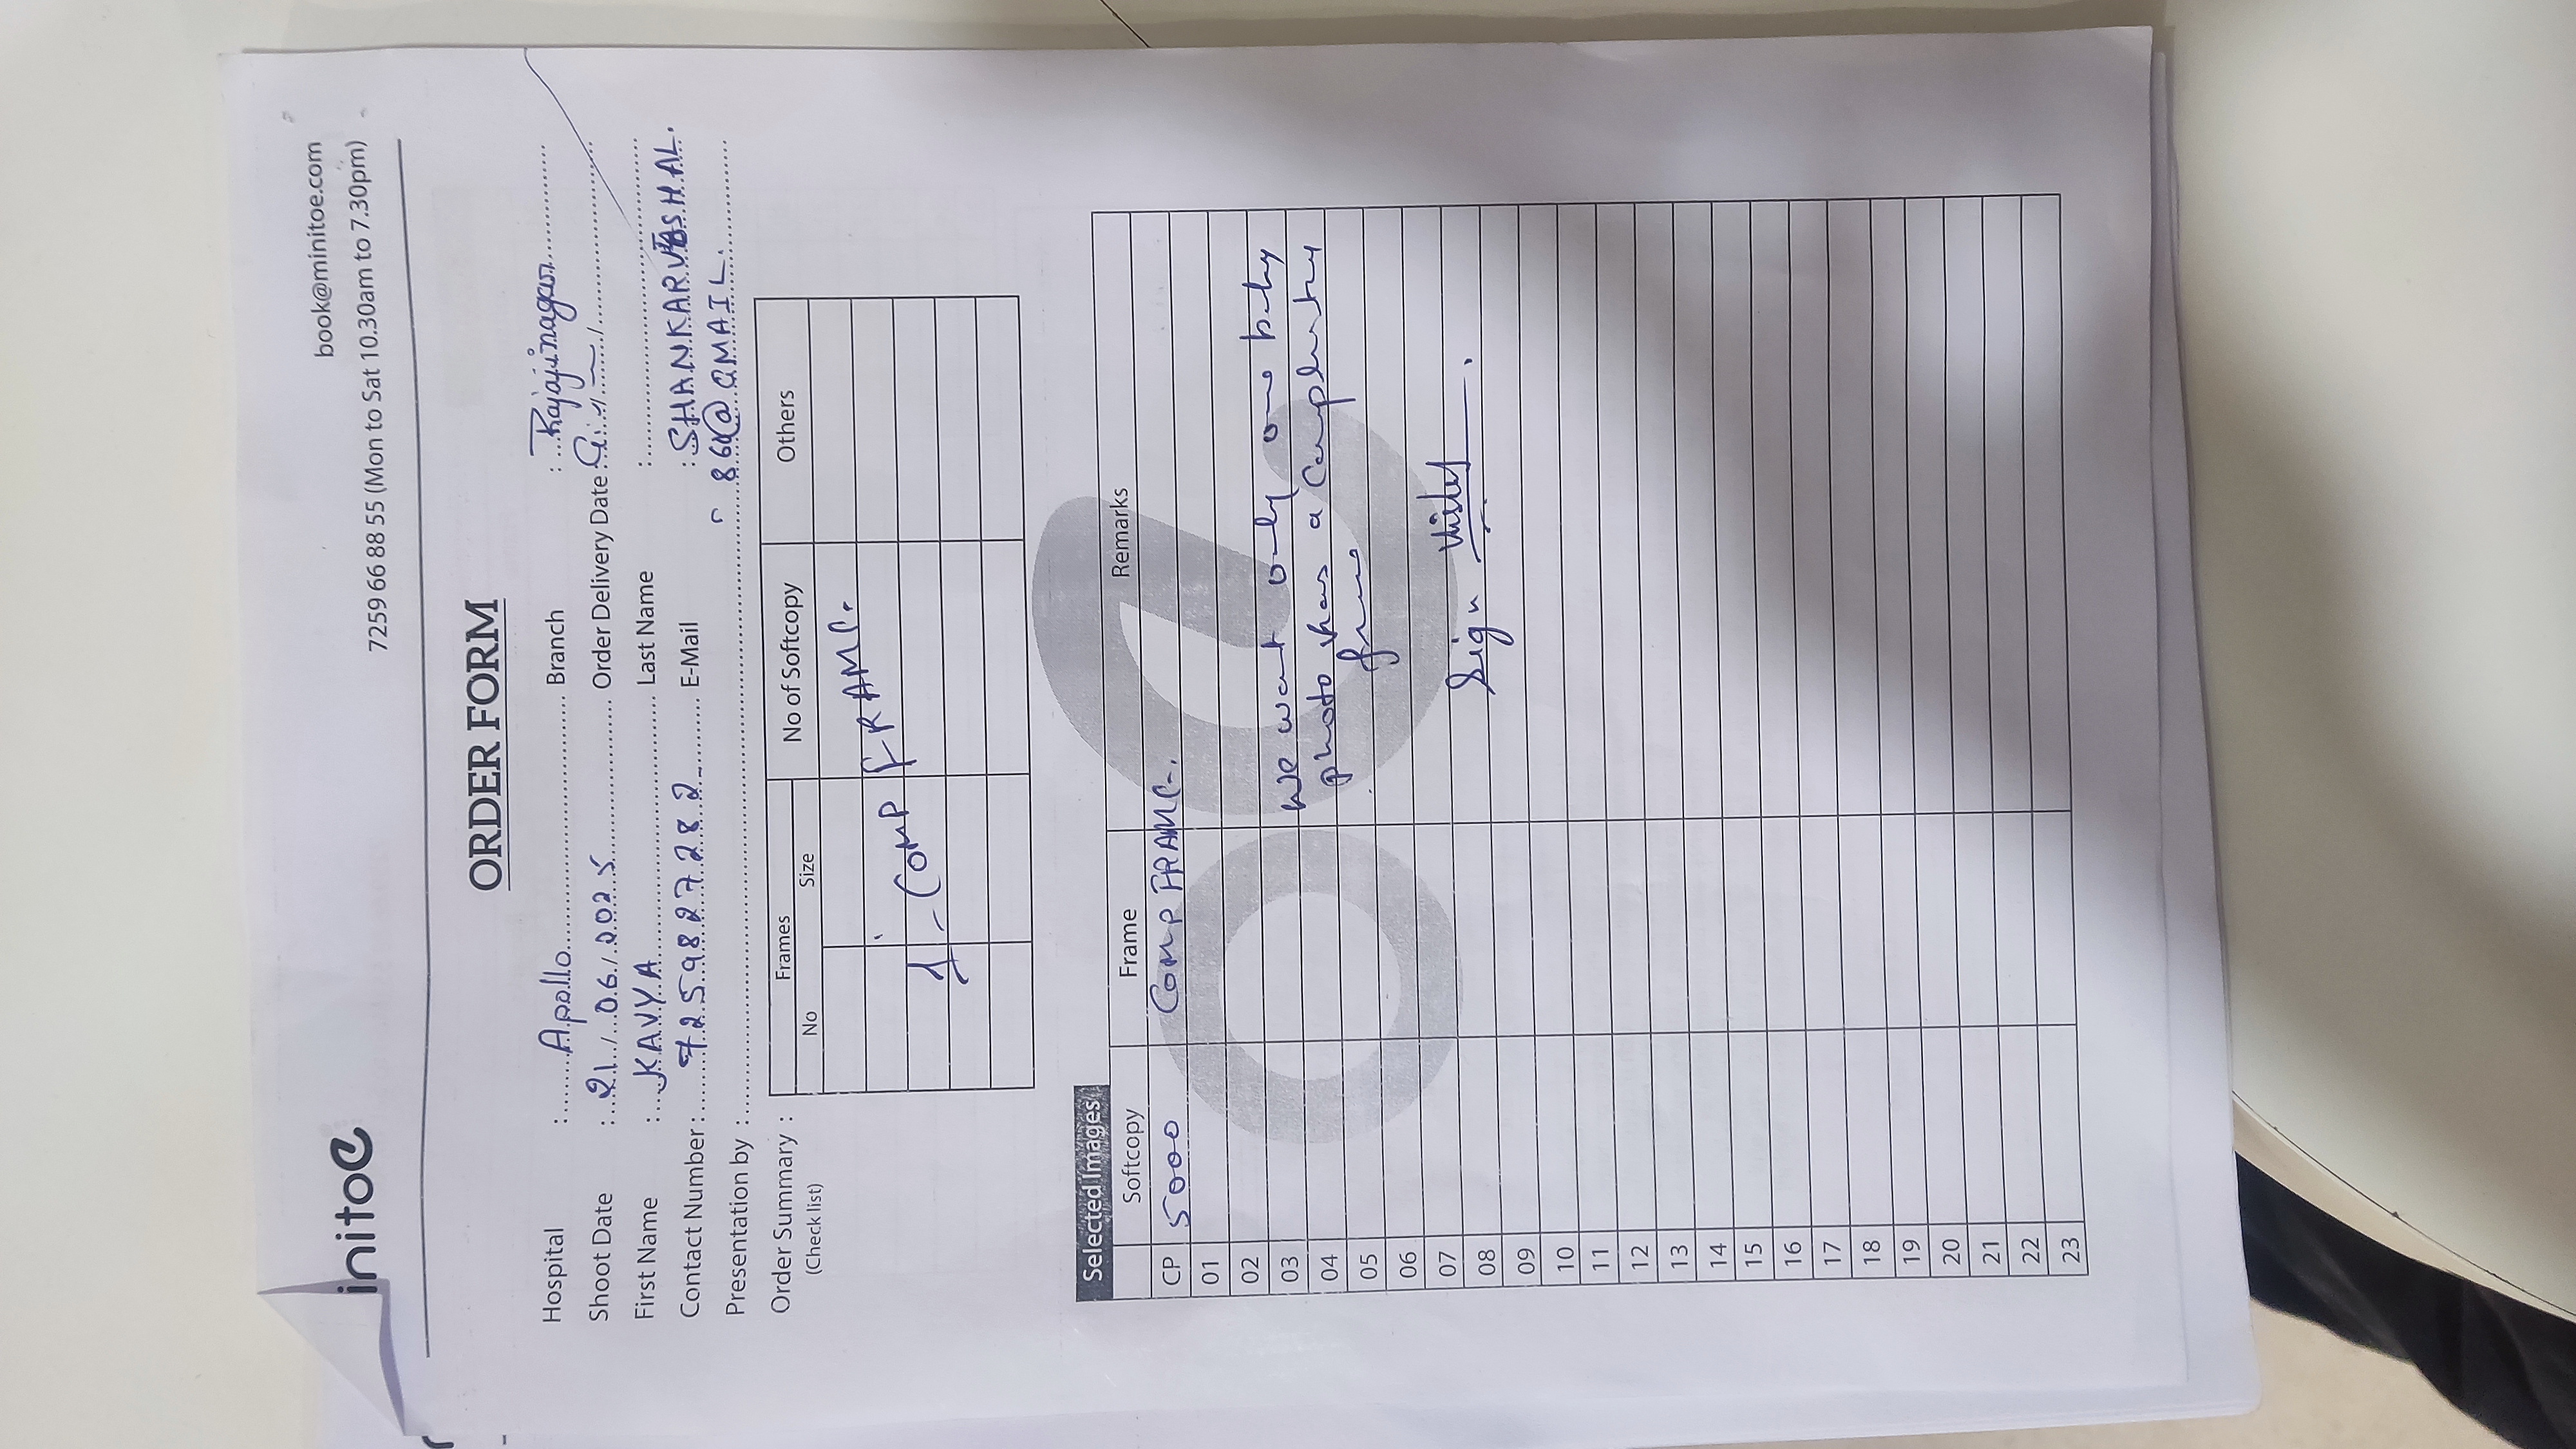 initoe
book@minitoe.com
7259 66 88 55 (Mon to Sat 10.30am to 7.30pm)
ORDER FORM
Hospital : Apollo Branch : Rajajinagar
Shoot Date : 21/06/2025 Order Delivery Date :
First Name : KAVYA Last Name :
Contact Number : 7259827282 E-Mail : SHANKARVISHAL.
Presentation by : 864@GMAIL.
Order Summary : Frames No of Softcopy Others
(Check list) No Size
1 - COMP FRAME.
Selected Images
Softcopy Frame Remarks
CP 5000 COMP FRAME.
01
02
03 We want only one baby
04 photo as a Complentry
05 frame
06
07 Sign
08
09
10
11
12
13
14
15
16
17
18
19
20
21
22
23